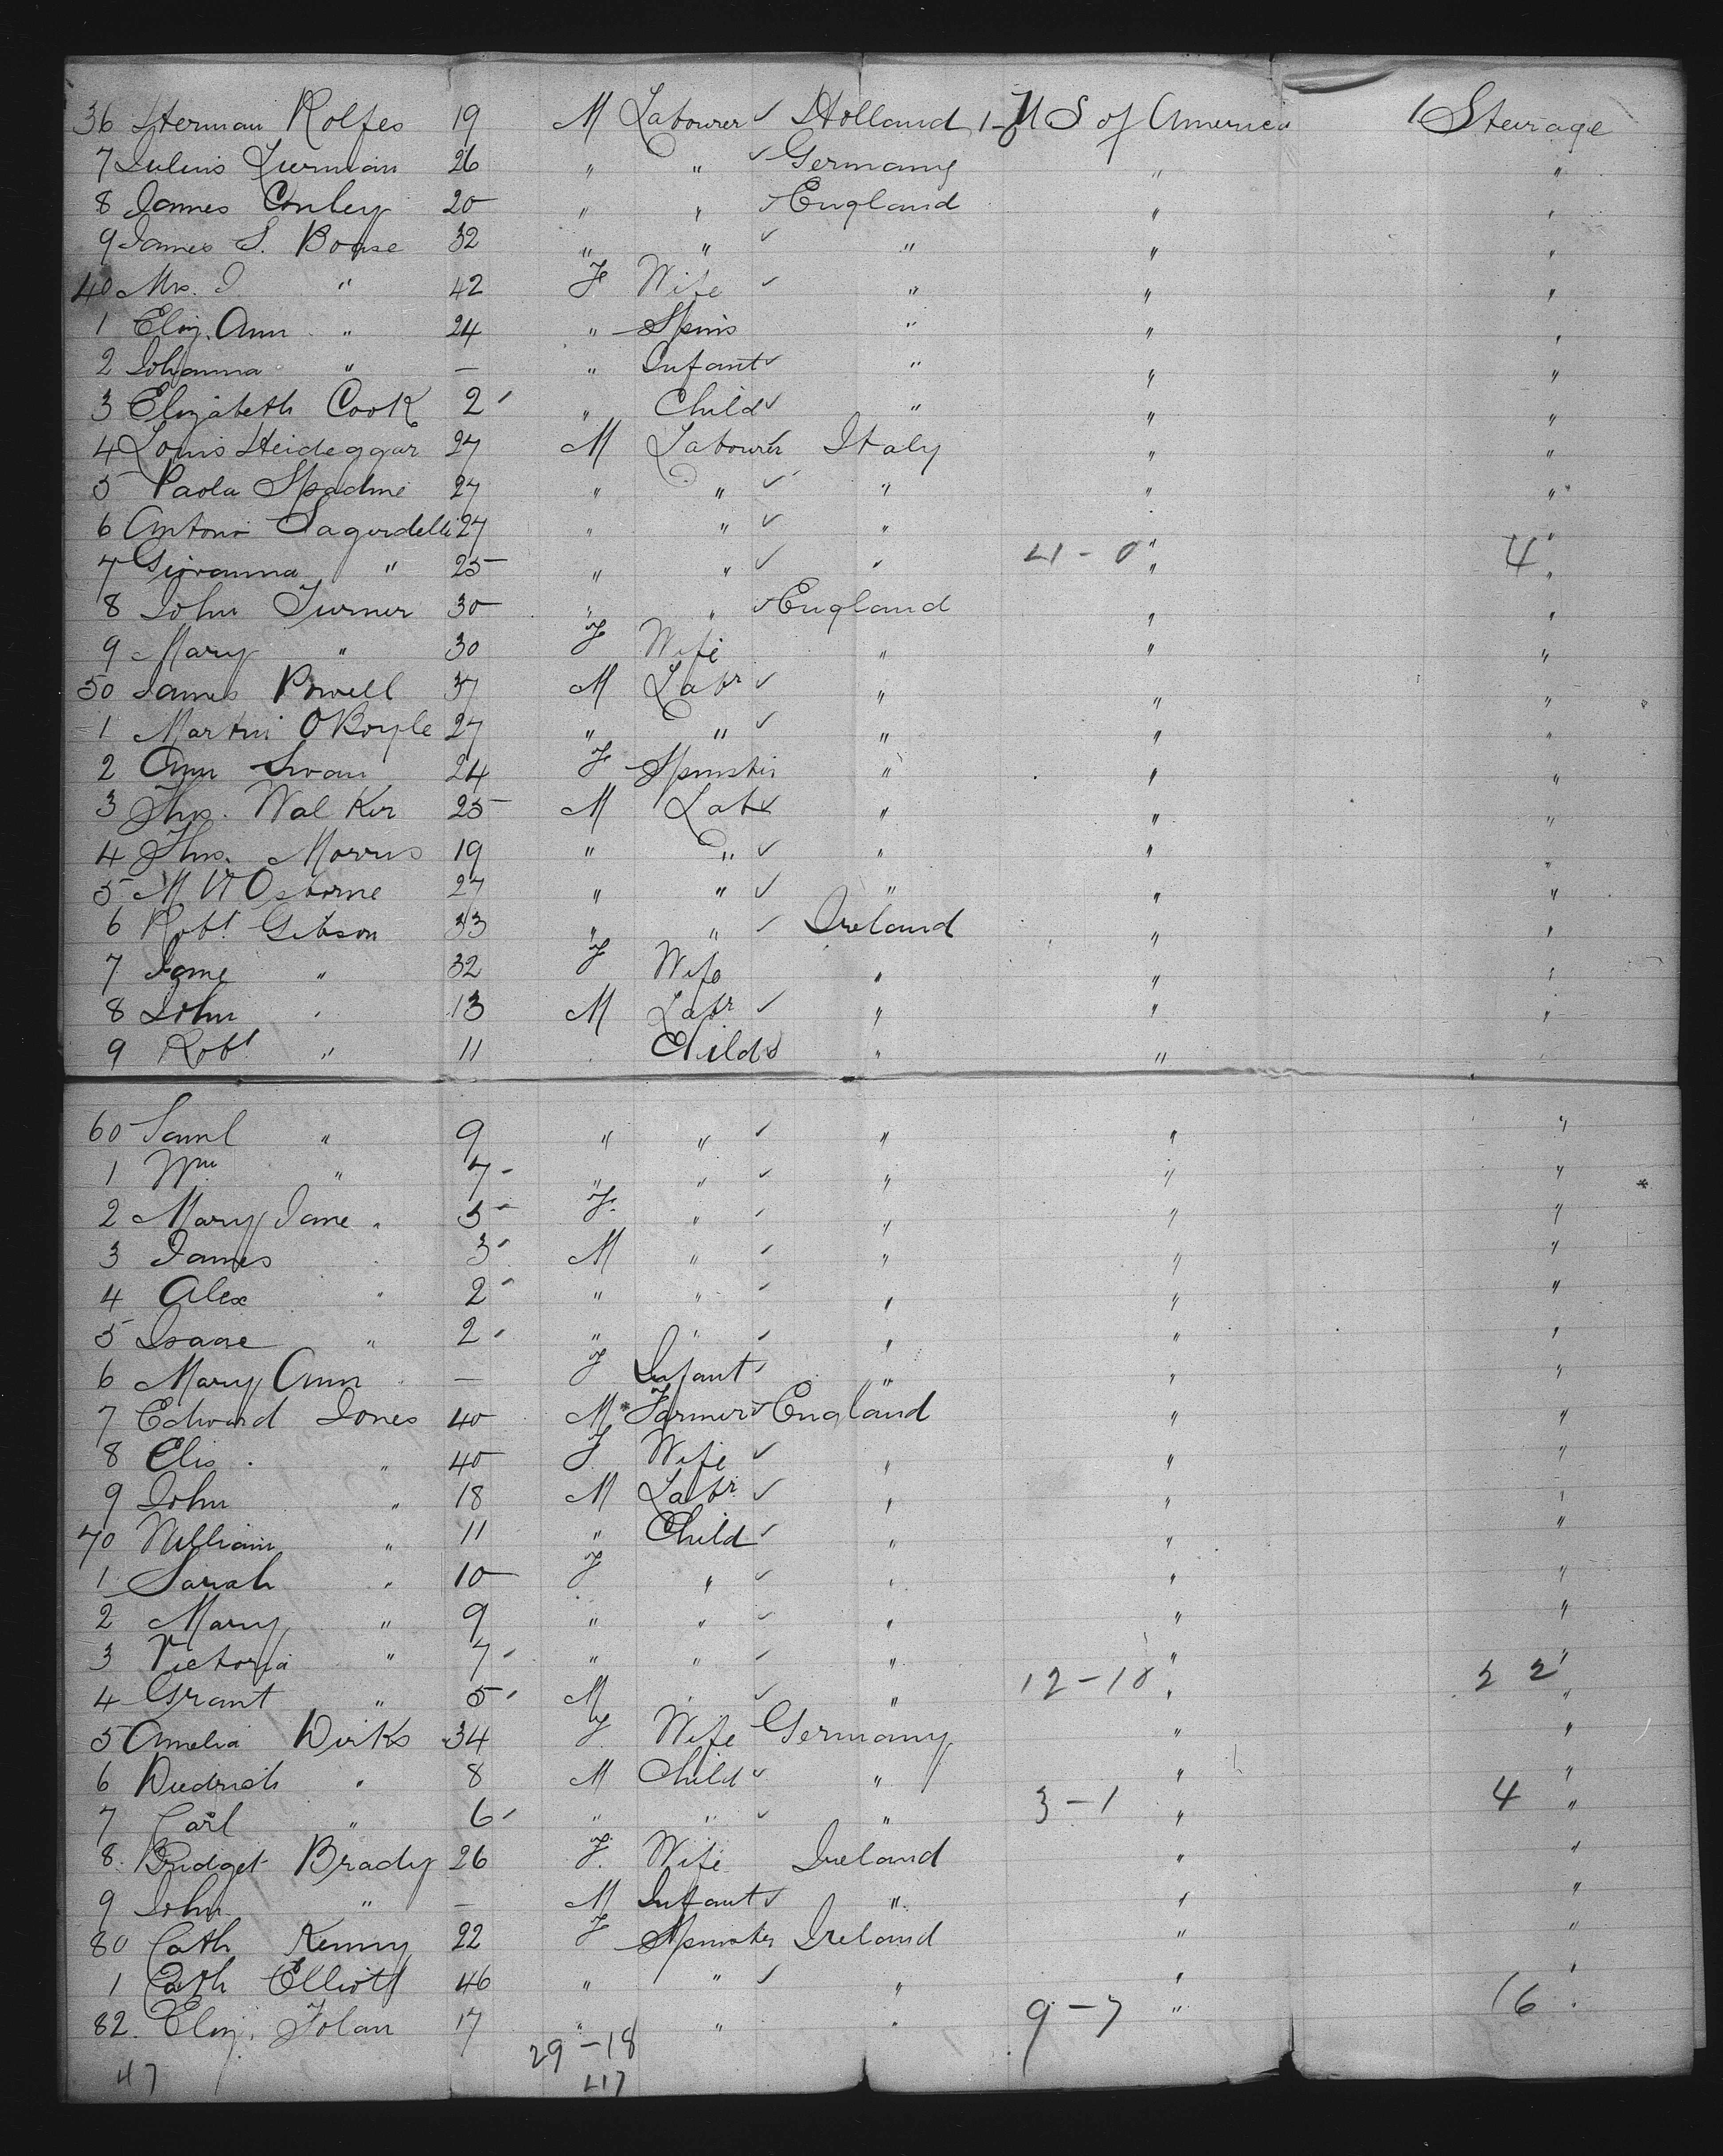 36 Herman Rolfes 19 M Labourer ✓ Holland 1 U S of America 1 Steerage
7 Julius 26 " " ✓ Germany " "
8 James Conley 20 " " ✓ England " "
9 James S. Boase 32 " " ✓ " " "
40 Mrs. J " 42 F Wife ✓ " " "
1 Eliz. Ann " 24 " Spins " " "
2 Johanna " — " Infant ✓ " " "
3 Elizabeth Cook 2 " Child ✓ " " "
4 Louis Heideggar 27 M Labourer Italy " "
5 Paola 27 " " ✓ " " "
6 Antoni 27 " " ✓ " " "
7 Giovanna " 25 " " ✓ " 4 - 0 " 4 "
8 John Turner 30 " " ✓ England " "
9 Mary " 30 F Wife " " "
50 James Powell 37 M Labr ✓ " " "
1 Martin O'Boyle 27 " " ✓ " " "
2 Ann Swan 24 F Spinster " " "
3 Thos. Walker 25 M Labr ✓ " " "
4 Thos. Morris 19 " " ✓ " " "
5 M Osborne 27 " " ✓ " " "
6 Robt Gibson 33 " " ✓ Ireland " "
7 Jane " 32 F Wife " " "
8 John " 13 M Labr ✓ " " "
9 Robt " 11 Child ✓ " " "
60 Saml " 9 " " ✓ " " "
1 Wm " 7 " " ✓ " " "
2 Mary Jane " 5 F. " ✓ " " "
3 James 3 M " ✓ " " "
4 Alex " 2 " " ✓ " " "
5 Isaac " 2 " " ✓ " " "
6 Mary Ann — F Infant ✓ " " "
7 Edward Jones 40 M Farmer ✓ England " "
8 Elis. " 40 F Wife ✓ " " "
9 John " 18 M Labr ✓ " " "
70 William " 11 " Child ✓ " " "
1 Sarah " 10 F " ✓ " " "
2 Mary " 9 " " ✓ " " "
3 Victoria " 7 " " ✓ " " "
4 Grant " 5 M " ✓ " 12 - 10 " 22 "
5 Amelia Dirks 34 F Wife Germany " "
6 Diedrich " 8 M Child ✓ " " "
7 Carl " 6 " " ✓ " 3 - 1 " 4 "
8. Bridget Brady 26 F. Wife Ireland " "
9 John " — M Infant ✓ " " "
80 Cath Kenny 22 F Spinster Ireland " "
1 Cath Elliott 46 " " ✓ " " "
82. Eliz. Folan 17 " " " 9 - 7 " 16 "
29 - 18
47 47